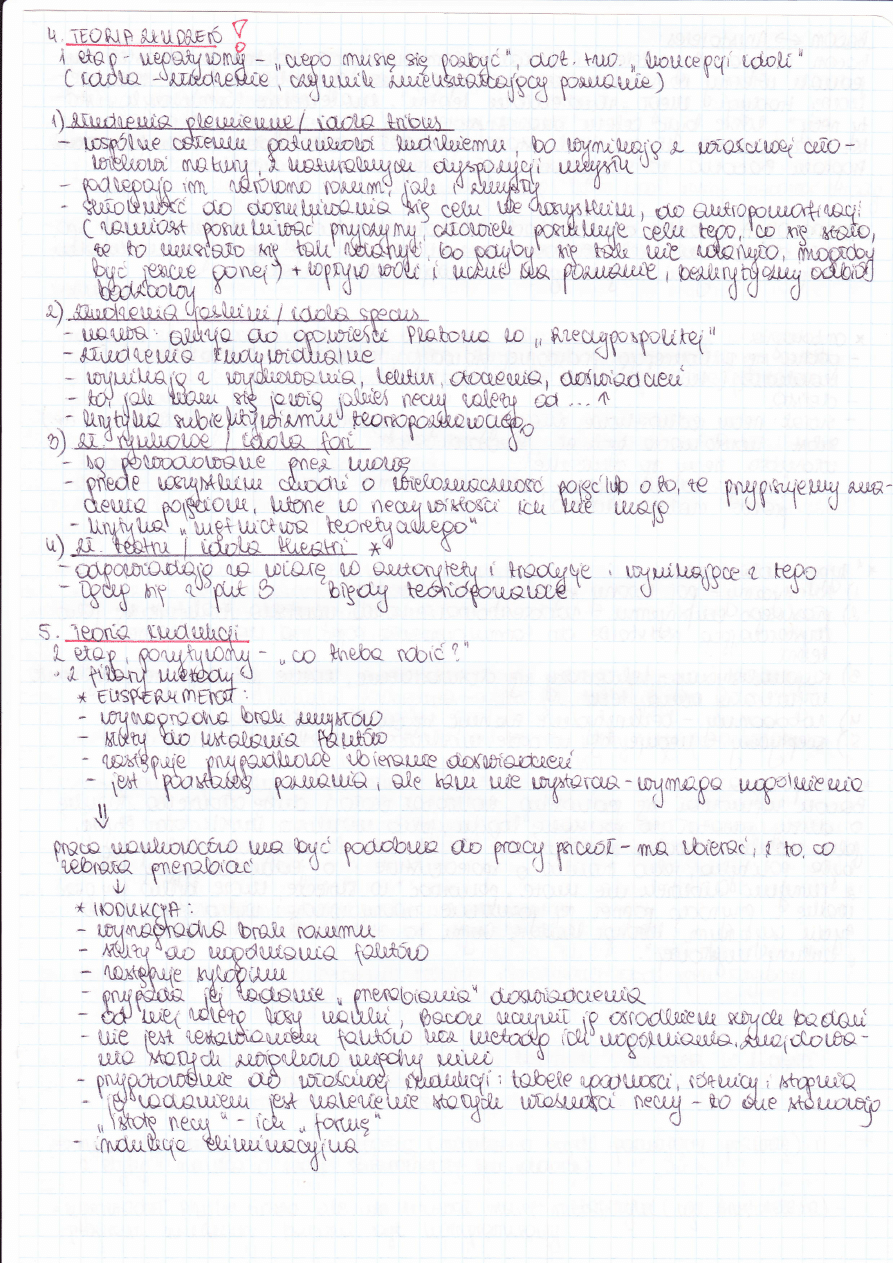 4. TEORIA ZŁUDZEŃ !
1 etap - negatywny - „czego muszę się pozbyć", dot. tzw. „koncepcji idoli"
(idola - złudzenie, czynnik zniekształcający poznanie)
1) złudzenia plemienne / idola tribus
- wspólne całemu gatunkowi ludzkiemu, bo wynikają z właściwej czło-
wiekowi natury, z naturalnych dyspozycji umysłu
- podlegają im zarówno rozum, jak i zmysły
- skłonność do doszukiwania się celu we wszystkim, do antropomorfizacji
(zamiast poszukiwać przyczyny człowiek poszukuje celu tego, co się stało,
że to musiało się tak zdarzyć, bo gdyby się tak nie zdarzyło, mogłoby
być jeszcze gorzej) + wpływ woli i uczuć na poznanie, bezkrytyczny odbiór
bodźców
2) złudzenia jaskini / idola specus
- nazwa: aluzja do opowieści Platona w „Rzeczypospolitej"
- złudzenia indywidualne
- wynikają z wychowania, lektur, otoczenia, doświadczeń
- to, jak nam się jawią jakieś rzeczy zależy od ... ↑
- krytyka subiektywizmu teoriopoznawczego
3) zł. rynkowe / idola fori
- są powodowane przez mowę
- przede wszystkim chodzi o wieloznaczność pojęć lub o to, że przypisujemy zna-
czenia pojęciom, które w rzeczywistości ich nie mają
- krytyka „mętnictwa teoretycznego"
4) zł. teatru / idola theatri *
- odpowiadają za wiarę w autorytety i tradycję i wynikające z tego
- łączy się z pkt. 3 błędy teoriopoznawcze
5. Teoria indukcji
2 etap, pozytywny - „co trzeba robić?"
• 2 filary metody
* EKSPERYMENT:
- wynagradza brak zmysłów
- służy do ustalania faktów
- zastępuje przypadkowe zbieranie doświadczeń
- jest podstawą poznania, ale sam nie wystarcza - wymaga uogólnienia
⇓
praca naukowców ma być podobna do pracy pszczół - ma zbierać, i to, co
zebrała przerabiać
↓
* INDUKCJA:
- wynagradza brak rozumu
- służy do uogólniania faktów
- zastępuje sylogizm
- przypada jej zadanie „przerabiania" doświadczenia
- od niej zależą losy nauki, Bacon uczynił ją ośrodkiem swych badań
- nie jest zestawianiem faktów lecz metodą ich uogólniania, znajdowa-
nia stałych związków między nimi
- przygotowanie do właściwej indukcji: tabele obecności, różnicy i stopnia
- jej zadaniem jest znalezienie stałych własności rzeczy - to one stanowią
„istotę rzeczy" - ich „formę"
- indukcja eliminacyjna